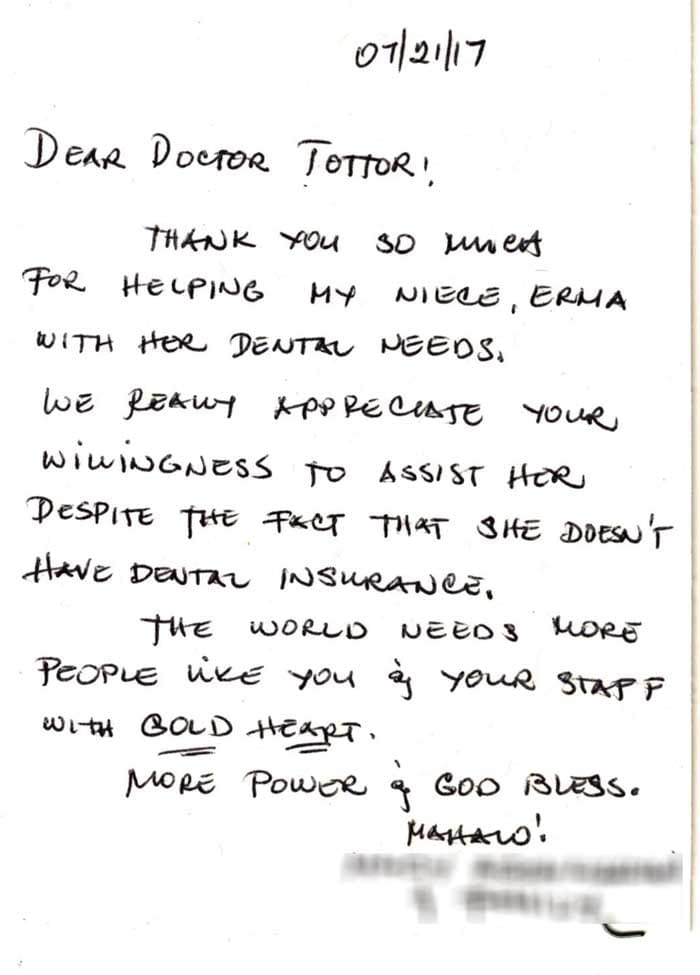 07/21/17
DEAR DOCTOR TOTTOR!
THANK YOU SO MUCH
FOR HELPING MY NIECE, ERMA
WITH HER DENTAL NEEDS.
WE REALLY APPRECIATE YOUR
WILLINGNESS TO ASSIST HER
DESPITE THE FACT THAT SHE DOESN'T
HAVE DENTAL INSURANCE.
THE WORLD NEEDS MORE
PEOPLE LIKE YOU & YOUR STAFF
WITH GOLD HEART.
MORE POWER & GOD BLESS.
MAHALO!